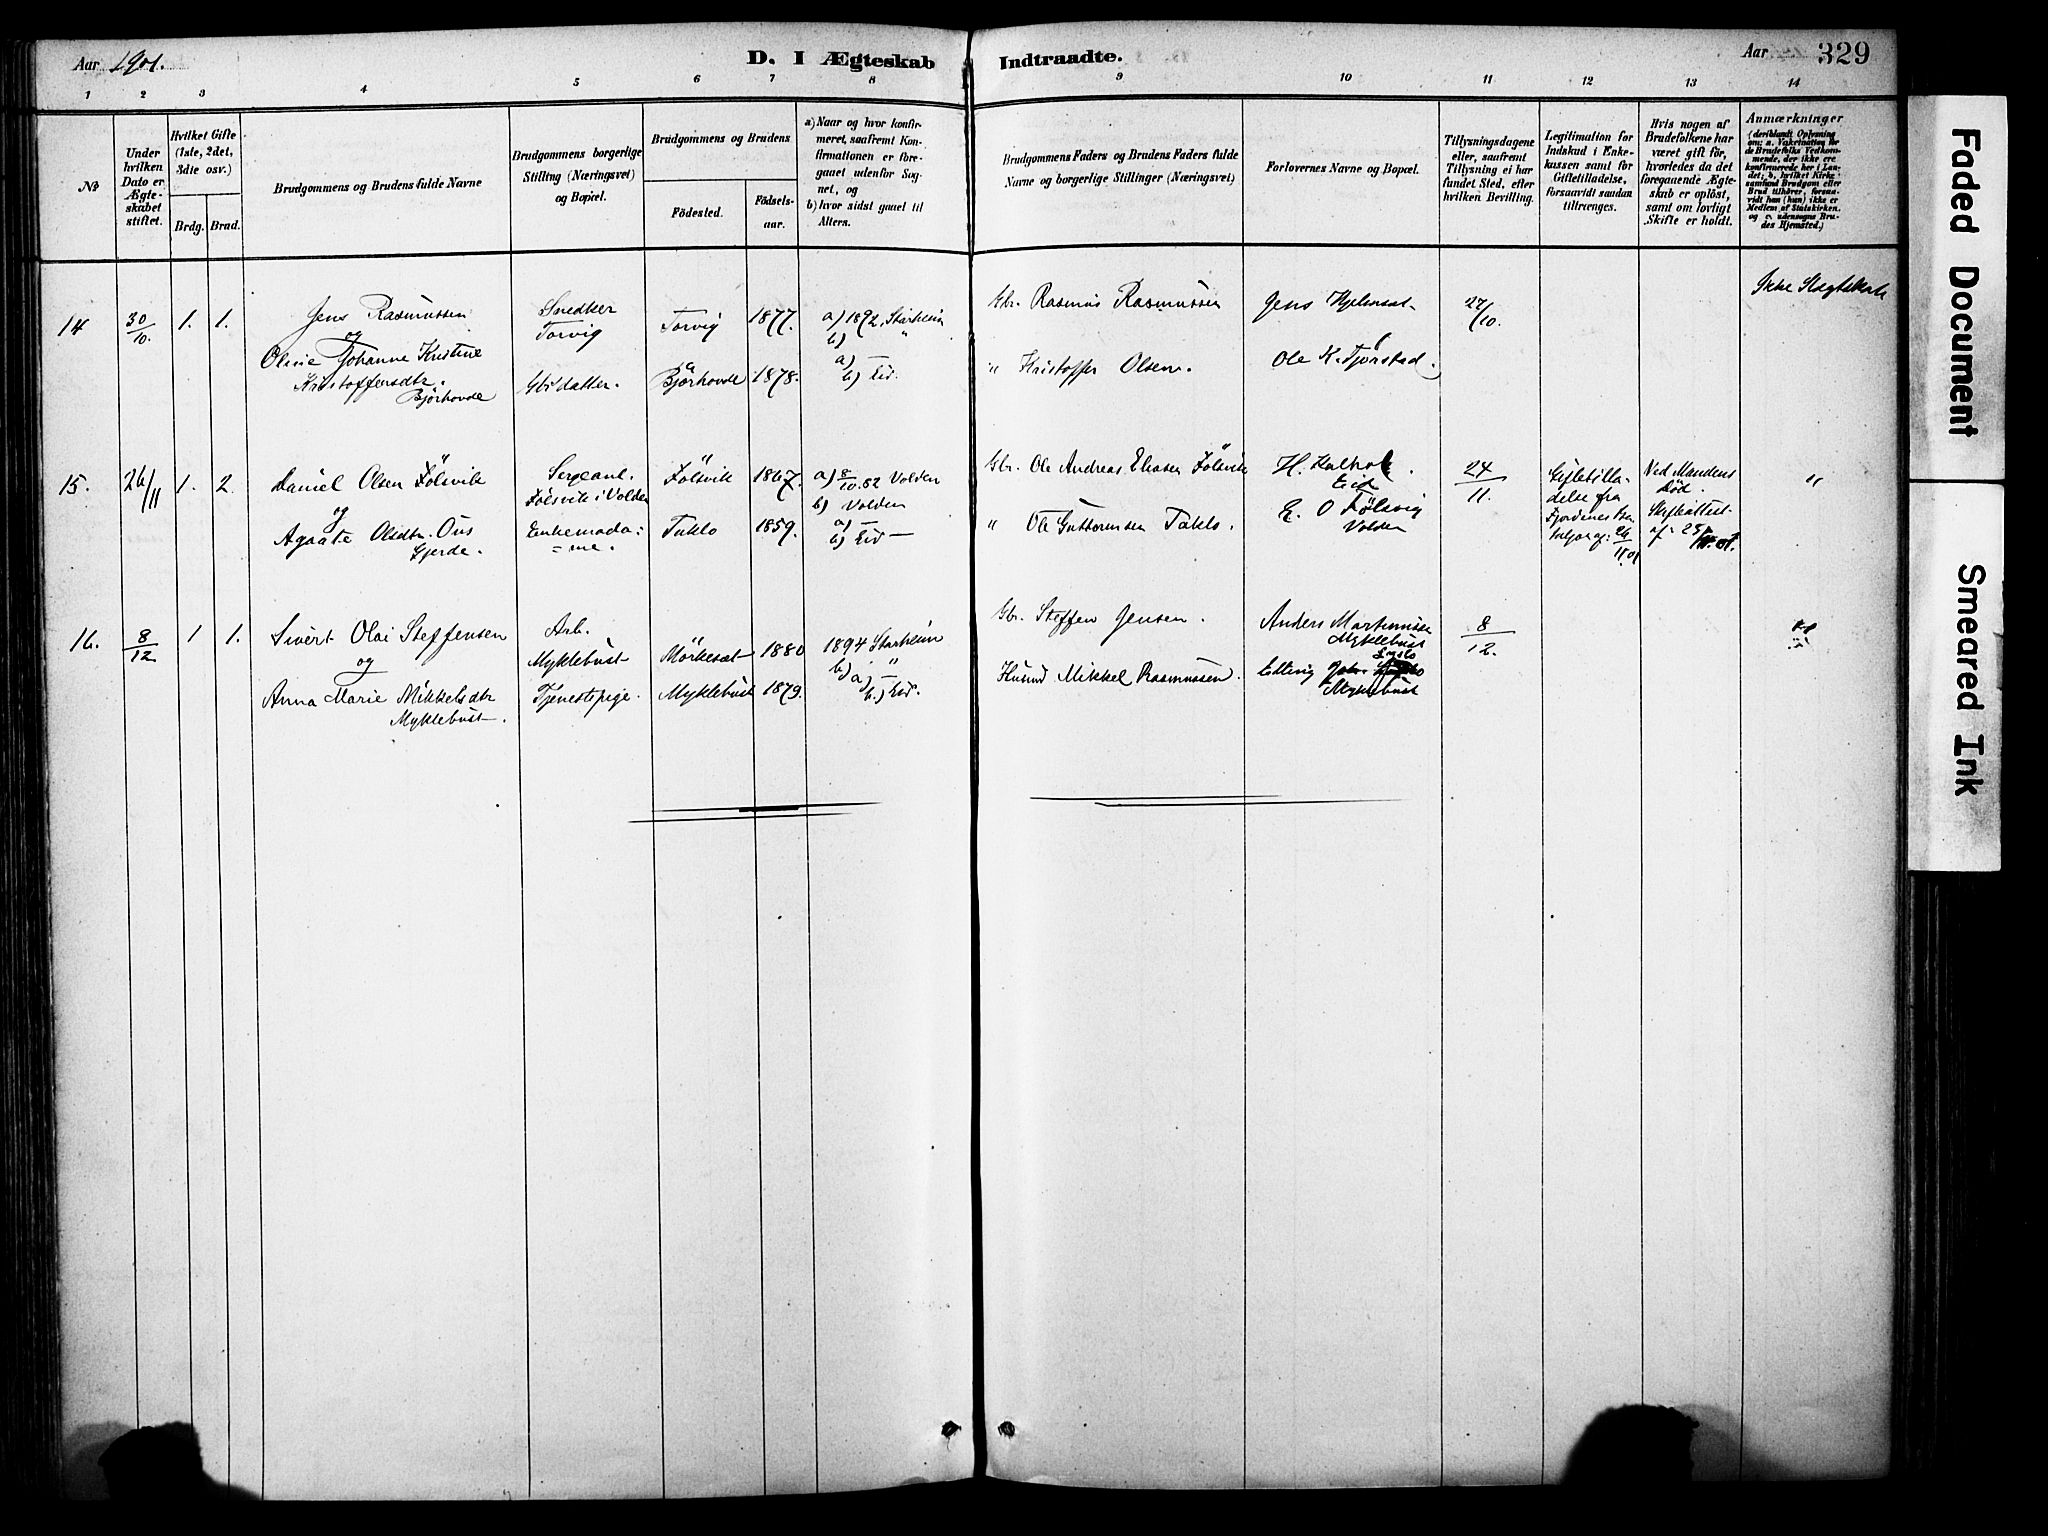 Aar 1901.
D. I Ægteskab Indtraadte.
Aar 329
1 2 3 4 5 6 7 8 9 10 11 12 13 14
No
Under hvilken Dato er Ægteskabet stiftet.
Hvilket Gifte (1ste, 2det, 3die osv.)
Brdg. Brud.
Brudgommens og Brudens fulde Navne
Brudgommens borgerlige Stilling (Næringsvei) og Bopæl.
Brudgommens og Brudens
Födested.
Födsels-aar.
a) Naar og hvor konfirmeret, saafremt Konfirmationen er foregaaet udenfor Sognet, og
b) hvor sidst gaaet til Alters.
Brudgommens Faders og Brudens Faders fulde Navne og borgerlige Stillinger (Næringsvei)
Forlovernes Navne og Bopæl.
Tillysningsdagene eller, saafremt Tillysning ei har fundet Sted, efter hvilken Bevilling.
Legitimation for Indskud i Enkekassen samt for Giftetilladelse, forsaavidt saadan tiltrænges.
Hvis nogen af Brudefolkene har været gift för, hvorledes da det foregaaende Ægteskab er oplöst, samt om lovligt Skifte er holdt.
Anmærkninger
(deriblandt Oplysning om: a. Vakcination for de Brudefolks Vedkommende, der ikke ere konfirmerede her i Landet; b. hvilket Kirkesamfund Brudgom eller Brud tilhörer, forsaavidt han (hun) ikke er Medlem af Statskirken, og c. udensogns Brudes Hjemsted.)
14 30/10. 1. 1. Jens Rasmussen
og
Oline Johanne Kristine
Kristoffersdtr.
Bjørhovde
Snedker
Torvig
Gbr datter.
Torvig 1877.
Bjørhovde 1878.
a) 1892 Starheim
b) "
a) —
b) Eid.
Gbr. Rasmus Rasmussen
" Kristoffer Olsen.
Jens Hjelmset
Ole K. Tjørstad.
27/10.
Ikke Slægtskab
15. 26/11 1. 2. Daniel Olsen Følsvik
og
Agaate Olsdtr. Øus
Gjerde.
Sergeant.
Følsvik i Volden
Enkemada=
=me.
Følsvik 1867.
Taklo 1859.
a) 8/10. 82 Volden
b) Volden
a) —
b) Eid —
Gbr. Ole Andreas Eliasen Følsvik
" Ole Guttormsen Taklo.
Eid
E. O Følsvig
Volden
24/11.
Giftetilla-
delse fra
Fjordenes
Ved Mandens
Død.
Skifteattest
af 25/11. 01.
"
16. 8/12 1 1. Sivert Olai Steffensen
og
Anna Marie Mikkelsdtr
Myklebust.
Arb.
Myklebust
Tjenestepige.
Mörkesæt 1880
Myklebust 1879.
1894 Starheim
b) "
a) —
b.) Eid.
Gbr. Steffen Jensen.
Husmd Mikkel Rasmussen.
Anders Martinusse
Myklebust
Elling
Myklebust
8/12.
Faded Document
Smeared Ink